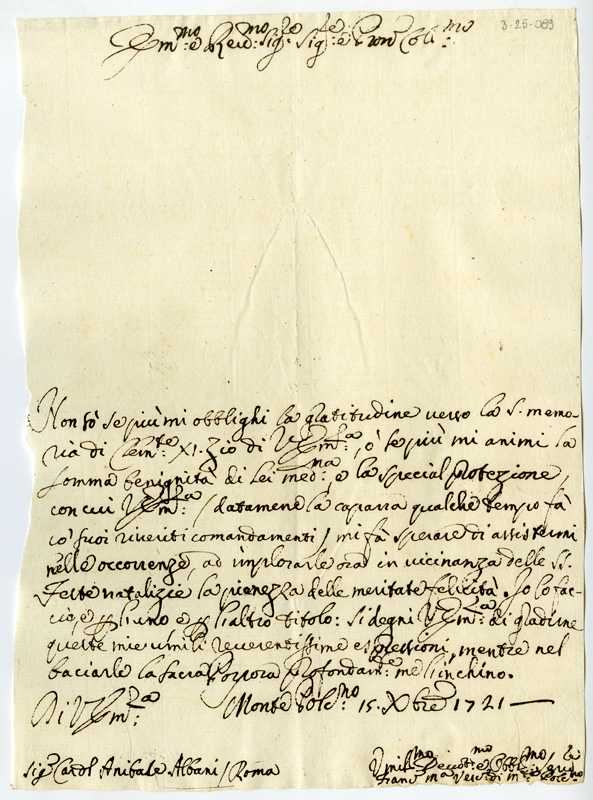 3-25-089
Em.mo e Rev.mo Sig.re Sig.re e Pron Coll.mo
Non sò se più mi obblighi la gratitudine verso la S. memo-
ria di Clem.te XI. Zio di V. Em.za, ò se più mi animi la
somma benignità di Lei med.ma, e la special Protezione,
con cui V. Em.za / datamene la caparra qualche tempo fà
co' suoi riveriti comandamenti / mi fà sperare di assistermi
nelle occorrenze, ad implorarle ora in vicinanza delle SS.
Feste natalizie la pienezza delle meritate felicità. Io lo fac-
cio, e p l'uno e p l'altro titolo: si degni V. Em.za di gradirne
queste mie umili reverentissime espressioni, mentre nel
baciarle la sacra Porpora profondam.te me l'inchino.
Di V. Em.za Monte Polc.no 15. Xbre 1721
Sig.r Cardl Anibale Albani / Roma
Umil.mo Devot.mo Obblig.mo
Franc. Ma Vesc. di